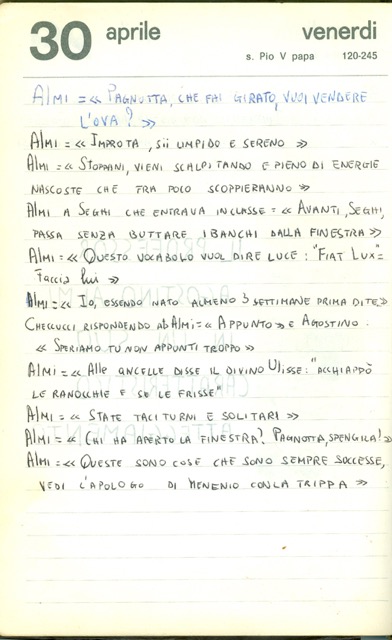 30 aprile venerdi
s. Pio V papa 120-245
Almi = « Pagnotta, che fai girato, vuoi vendere
l'ova? »
Almi = « Improta, sii limpido e sereno »
Almi = « Stoppani, vieni scalpitando e pieno di energie
nascoste che tra poco scoppieranno »
Almi a Seghi che entrava in classe = « Avanti, Seghi,
passa senza buttare i banchi dalla finestra »
Almi = « Questo vocabolo vuol dire luce: "Fiat Lux" =
Faccia lui »
Almi = « Io, essendo nato almeno 3 settimane prima di te »
Checcucci rispondendo ad Almi = « Appunto » e Agostino:
« Speriamo tu non appunti troppo »
Almi = « Alle ancelle disse il divino Ulisse: "acchiappò
le ranocchie e se le frisse"
Almi = « State taciturni e solitari »
Almi = « Chi ha aperto la finestra? Pagnotta, spengila! »
Almi = « Queste sono cose che sono sempre successe,
vedi l'apologo di Menenio con la trippa »